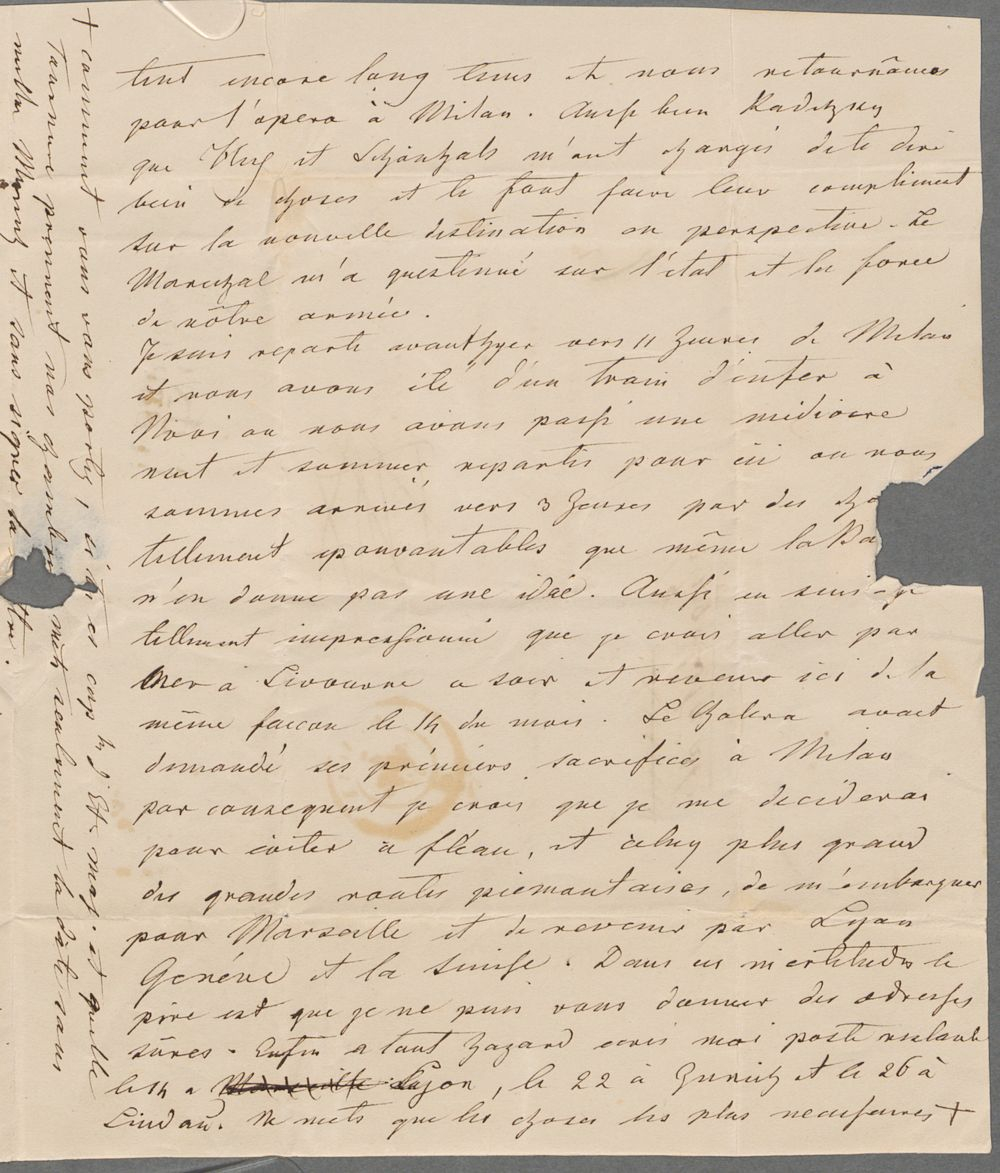 tint encore long tems et nous retournâmes
pour l'opera à Milan. Aussi bien Radetzky
que Hug et Schönhals m'ont chargés de te dire
bien de choses et te font faire leur compliment
sur la nouvelle destination en perspective. Le
Marechal m'a questiné sur l'état et les force
de nôtre armée.
Je suis reparti avanthyer vers 11 heures de Milan
et nous avons été d'un train d'enfer à
Novi ou nous avons passé une mediocre
nuit et sommes repartis pour ici ou nous
sommes arrivés vers 3 heures par des
tellement epouvantables que même la
n'en donne pas une idée. Aussi en suis-je
tellement impressionné que je crois aller par
mer à Livourne ce soir et revenir ici de la
même faccon le 14 du mois. Le Cholera avait
demandé ses prémiers sacrifices à Milan
par consequent je crois que je me deciderai
pour éviter ce fléau, et celuy plus grand
des grandes routes piemontaises, de m'embarquer
pour Marseille et de revenir par Lyon
Genéve et la Suisse. Dans ces incertitudes le
pire est que je ne puis vous donner des adresses
sûres. Enfin a tout hazard ecris moi poste restante
le 14 a Marseille Lyon, le 22 à Zurich et le 26 à
Lindau. Ne mets que les choses les plus necessaires +
+ comment vous vous portez, si et cap h d'Et. maj. et quelle
Tournure prennent nos chambres mets seulement la date sans
nulle et sans signer la lettre.